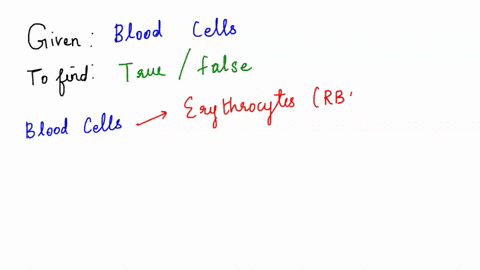 Given: Blood Cells
To find: True / false
Blood Cells → Erythrocytes (RB